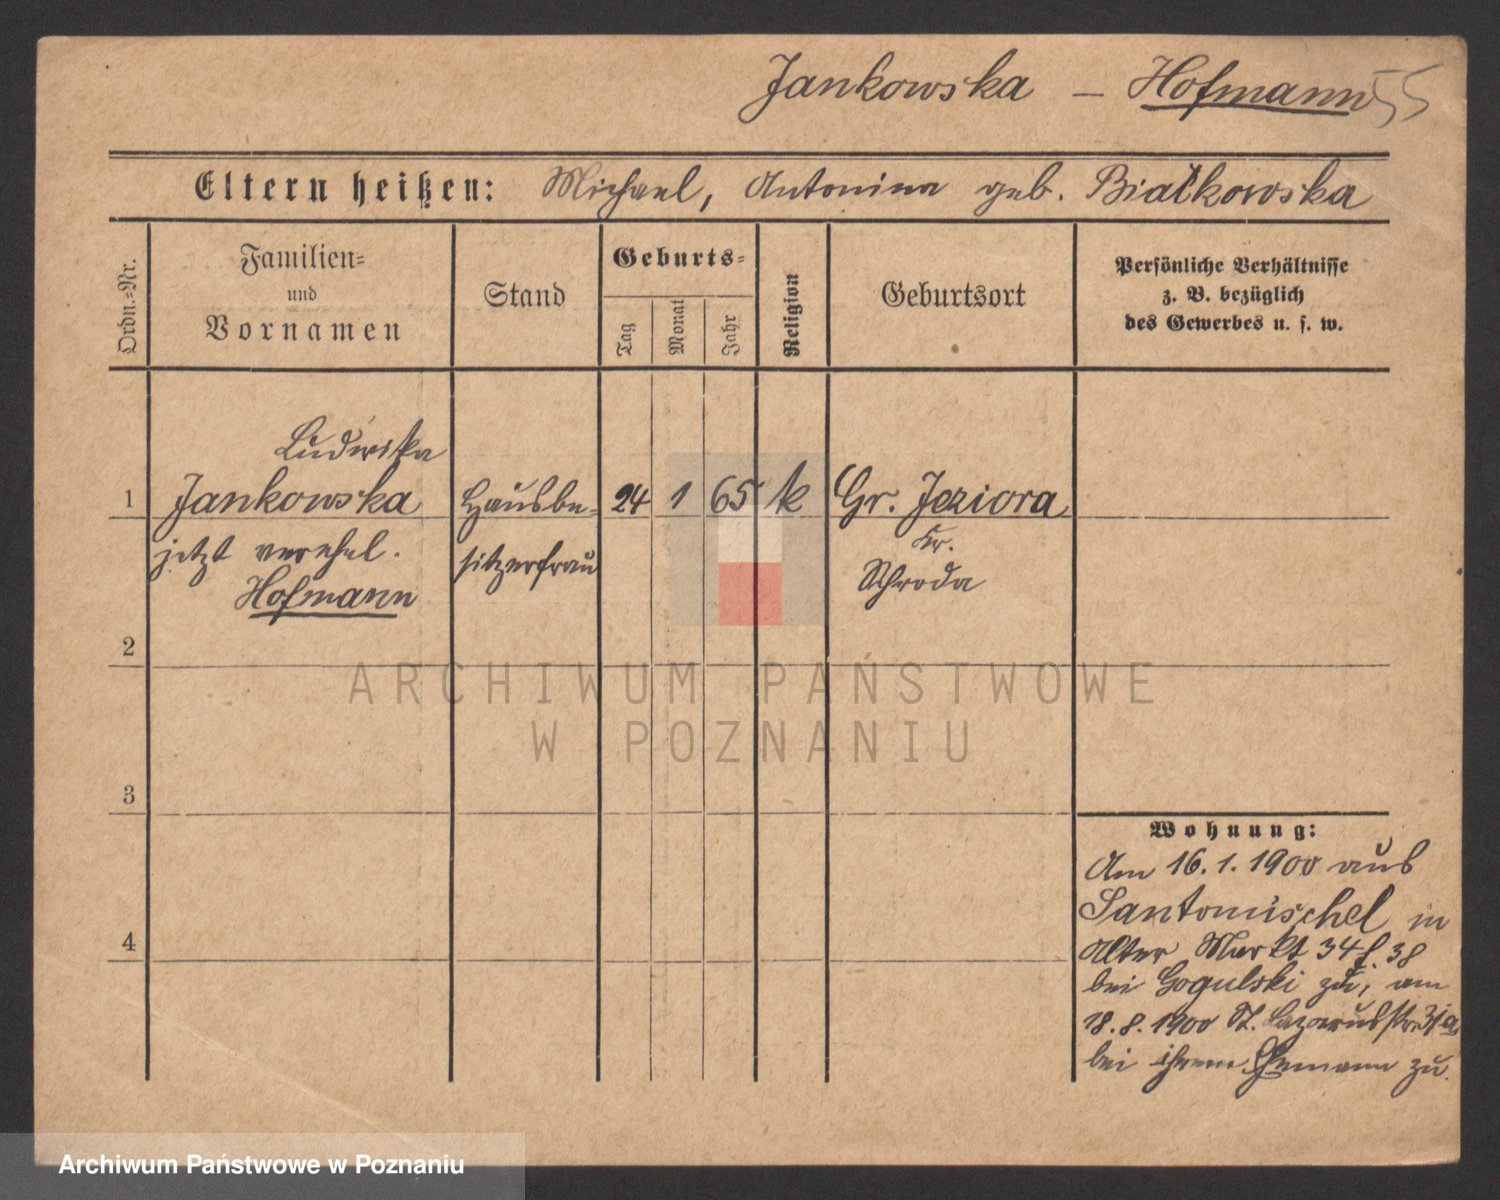 Jankowska – Hofmann 55
Eltern heißen: Michael, Antonina geb. Białkowska
Ordn.=Nr.
Familien=
und
Vornamen
Stand
Geburts=
Tag
Monat
Jahr
Religion
Geburtsort
Persönliche Verhältnisse
z. B. bezüglich
des Gewerbes u. s. w.
Ludwika
1 Jankowska Hausbe- 24 1 65 k Gr. Jeziora
jetzt verehel. sitzerfrau Kr.
Hofmann Schroda
2
3
4
Wohnung:
Am 16.1.1900 aus
Santomischel in
Alter Markt 34 f. 38
bei Gogulski zu, am
18.8.1900 St. Lazarusstr.
bei ihrem Ehemann zu.
ARCHIWUM PAŃSTWOWE
W POZNANIU
Archiwum Państwowe w Poznaniu